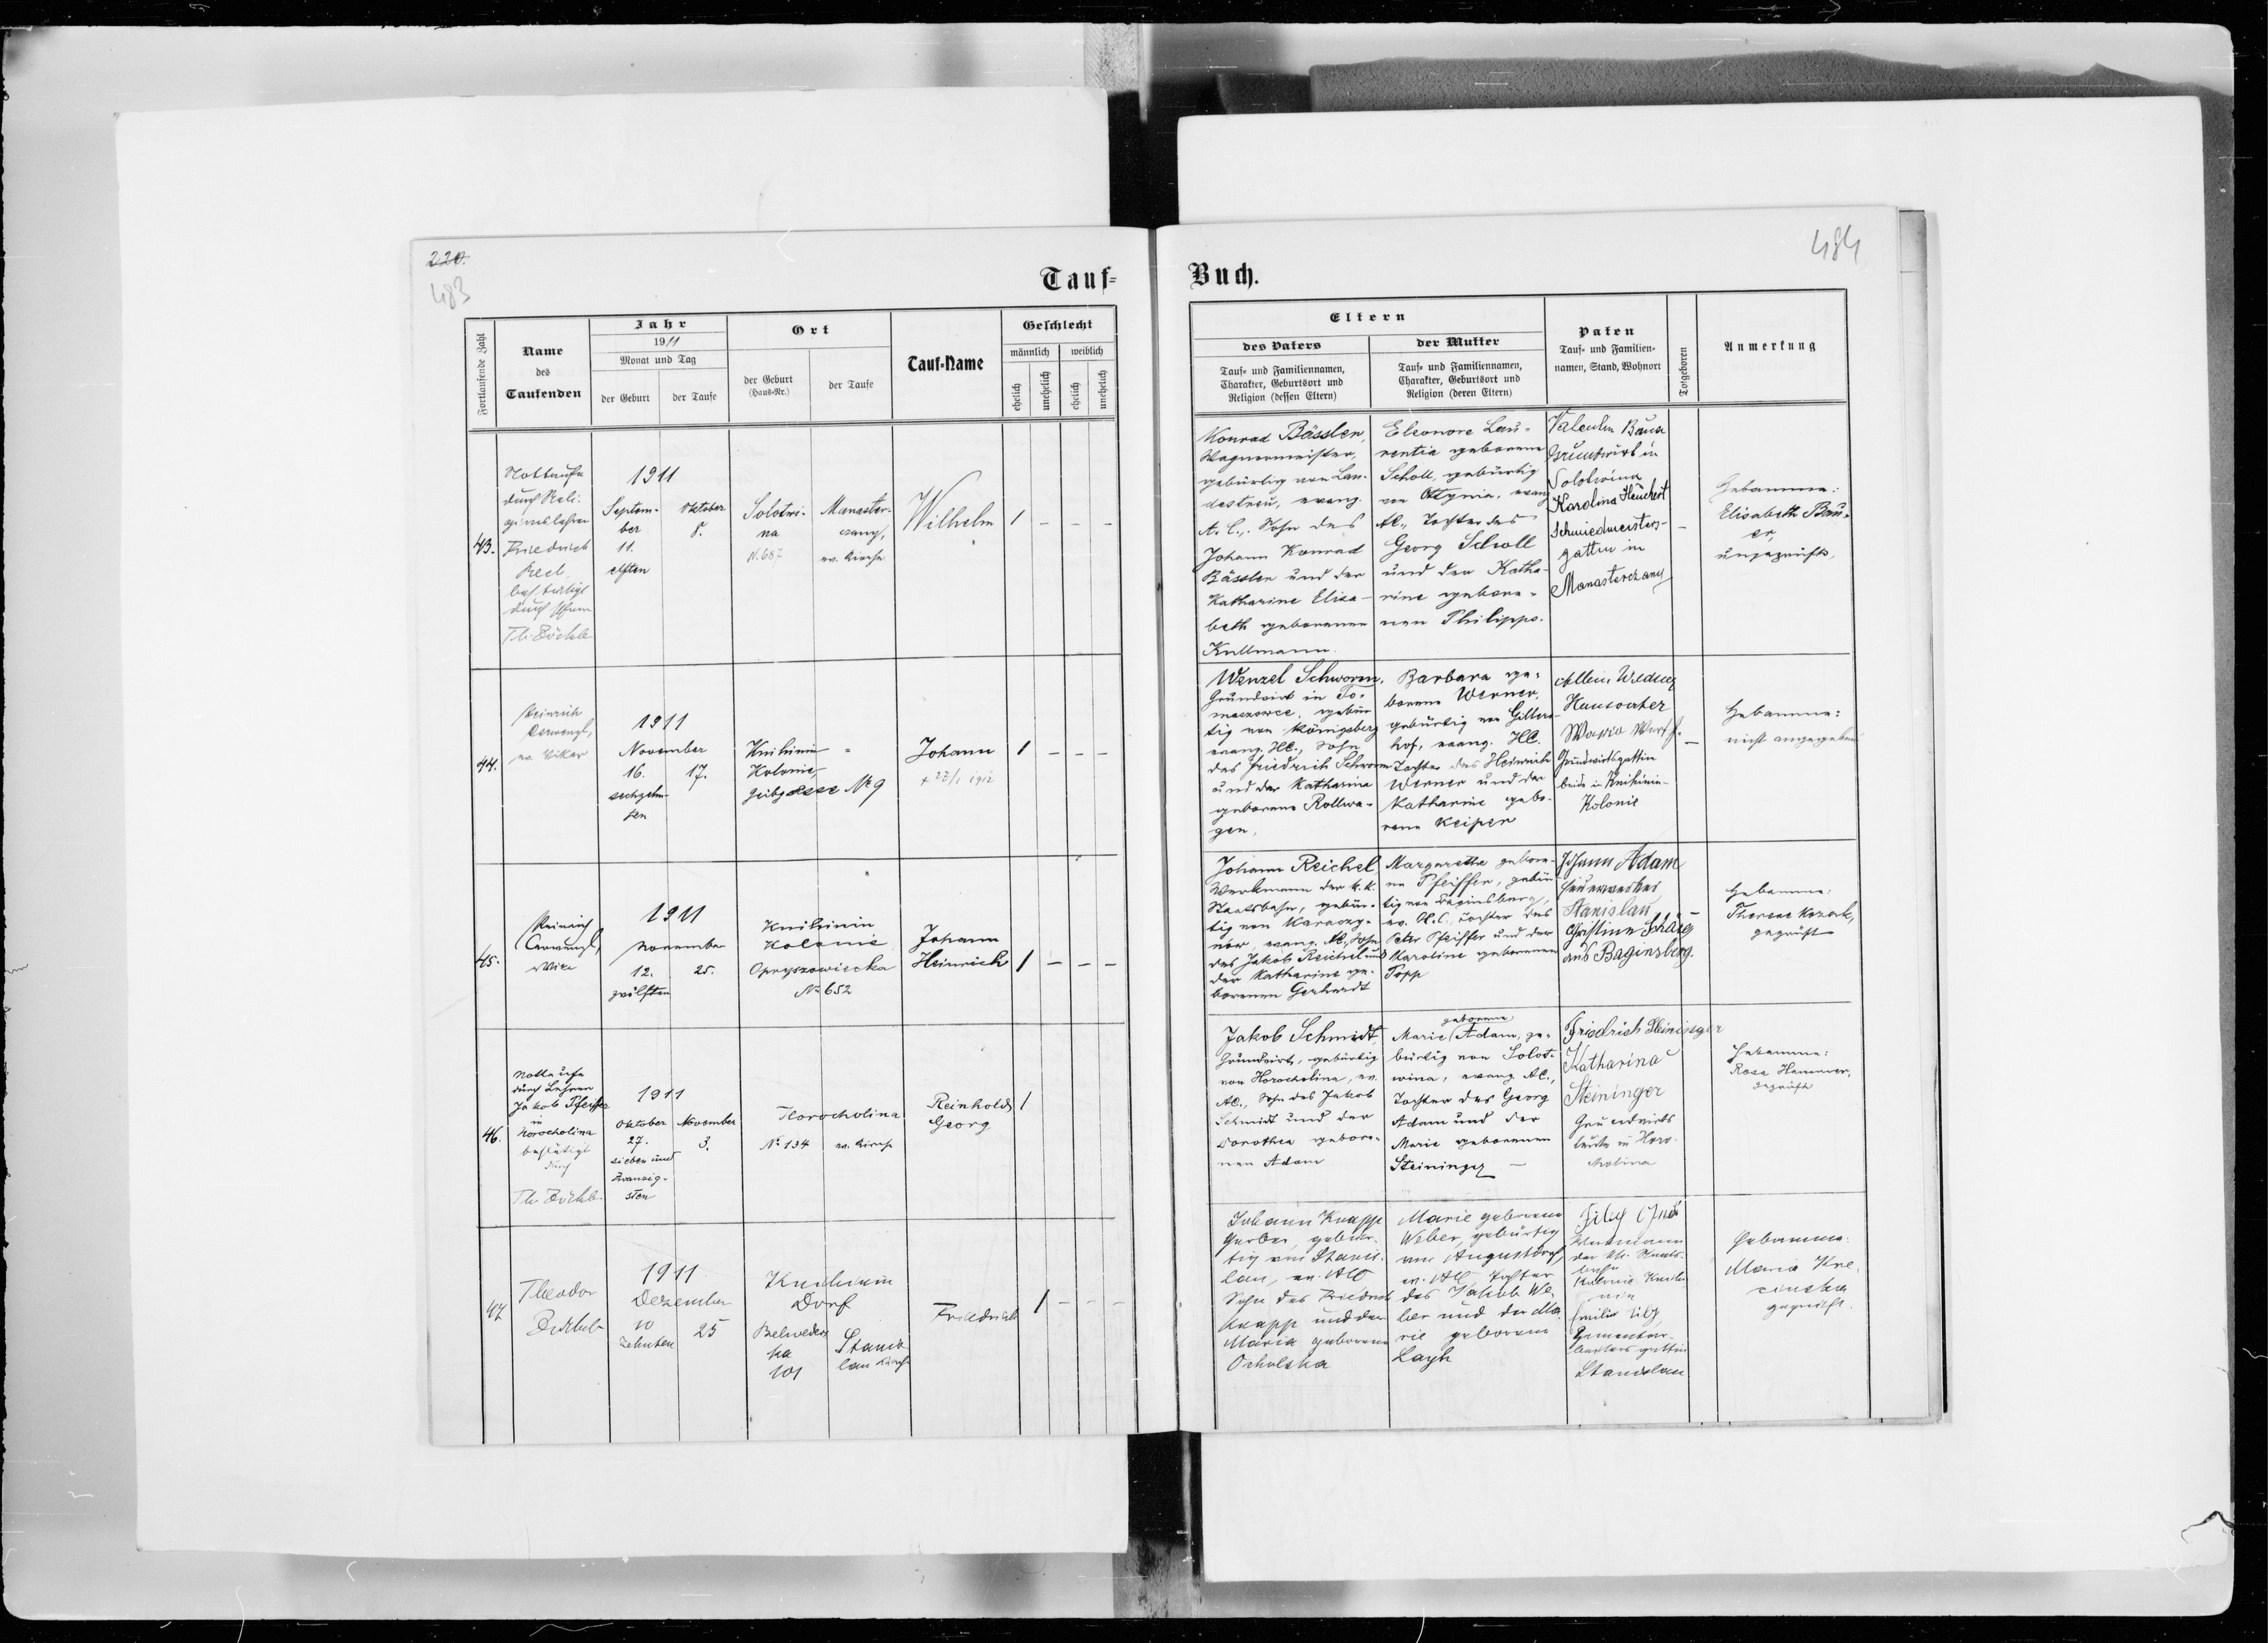 220.
483
Tauf-
Fortlaufende Zahl
Name
des
Taufenden
Jahr
1911
Monat und Tag
der Geburt
der Taufe
Ort
der Geburt
(Haus-Nr.)
der Taufe
Tauf-Name
Geschlecht
männlich
weiblich
ehelich
unehelich
ehelich
unehelich
43.
Nottaufe
durch Reli-
gionslehrer
Friedrich
Rech
bestätigt
durch Pfarrer
Th. Zöckler
1911
Septem-
ber
11.
elften
Oktober
8.
Solotwi-
na
N. 687
Manaster-
czany,
ev. Kirche
Wilhelm
1 - - -
44.
Heinrich
ev. Vikar
1911
November
16.
sechzehn-
ten
17.
Knihinin
Kolonie,
No 9
Johann
+ 27/1 1912
1 - - -
45.
Heinrich
1911
November
12.
zwölften
25.
Knihinin
Kolonie
Opryszowiecka
No 652
Johann
Heinrich
1 - - -
46.
Nottaufe
durch Lehrer
Jakob Pfeiffer
in
Horocholina
bestätigt
durch
Th. Zöckler
1911
Oktober
27.
sieben und
zwanzig-
sten
November
3.
Horocholina
No 134
ev. Kirche
Reinhold
Georg
1
47
Theodor
Zöckler
1911
Dezember
10
zehnten
25
Knihinin
Dorf
Belweders
ka
101
Stanis
lau Kirche
Friedrich
1 - - -
484
Buch.
Eltern
des Vaters
Tauf- und Familiennamen,
Charakter, Geburtsort und
Religion (dessen Eltern)
der Mutter
Tauf- und Familiennamen,
Charakter, Geburtsort und
Religion (deren Eltern)
Paten
Tauf- und Familien-
namen, Stand, Wohnort
Totgeboren
Anmerkung
Konrad Bässler,
Wagnermeister,
gebürtig von Lan-
destreu, evang.
A. C., Sohn des
Johann Konrad
Bässler und der
Katharine Elisa-
beth geborenen
Kullmann.
Eleonore Lau-
rentia geborene
Scholl, gebürtig
von Ottynia, evang
AC., Tochter des
Georg Scholl
und der Katha-
rine gebore-
nen Philipps.
Valentin Bauer
Grundwirt in
Solotwina
Karolina Heuchert
Schmiedmeisters-
gattin in
Manasterczany
-
Hebamme:
Elisabeth Bau-
er,
ungeprüft,
Wenzel Schworm,
Grundwirt in To-
maszowce, gebür
tig von Königsberg
evang. HC., Sohn
des Friedrich Schworm
und der Katharina
geborene Rollwa-
gen,
Barbara ge-
borene Werner,
gebürtig von Gillers-
hof, evang. HC.
Tochter des Heinrich
Werner und der
Katharine gebo-
rene Keiper
Hausvater
Grundwirtsgattin
beide in Knihinin-
Kolonie
-
Hebamme:
nicht angegeben
Johann Reichel
Werkmann der k.k.
Staatsbahn, gebür-
tig von Karaczy-
nów, evang. AC., Sohn
des Jakob Reichel und
der Katharine ge-
borenen Gerhardt
Margarethe gebore-
ne Pfeiffer, gebür
tig von Baginsberg,
ev. A.C., Tochter des
Peter Pfeiffer und der
Karoline geborenen
Popp
Johann Adam
Stanislau,
Christine
aus Baginsberg.
-
Hebamme:
Therese Kozak,
geprüft
Jakob Schmidt,
Grundwirt, gebürtig
von Horocholina, ev.
AC., Sohn des Jakob
Schmidt und der
Dorothea gebore-
nen Adam
geborene
Marie Adam, ge-
bürtig von Solot-
wina, evang. AC.,
Tochter des Georg
Adam und der
Marie geborenen
Steininger -
Friedrich Steininger
Katharina
Steininger
Grundwirts
leute in Horo-
cholina
Hebamme:
Rosa Hammer,
geprüft
Johann Knapp
Gerber, gebür-
tig aus Stanis-
lau, ev. AC
Sohn des Friedrich
Knapp und der
Maria geborene
Ocholska
Marie geborene
Weber, gebürtig
aus Augustdorf,
ev. AC, Tochter
des Jakob We-
ber und der Ma
rie geborene
Layh
Werkmann
der Staats-
bahn
Kolonie Knihi
nin
Emilie Jilg,
Stanislau
Hebamme:
Maria
geprüft.